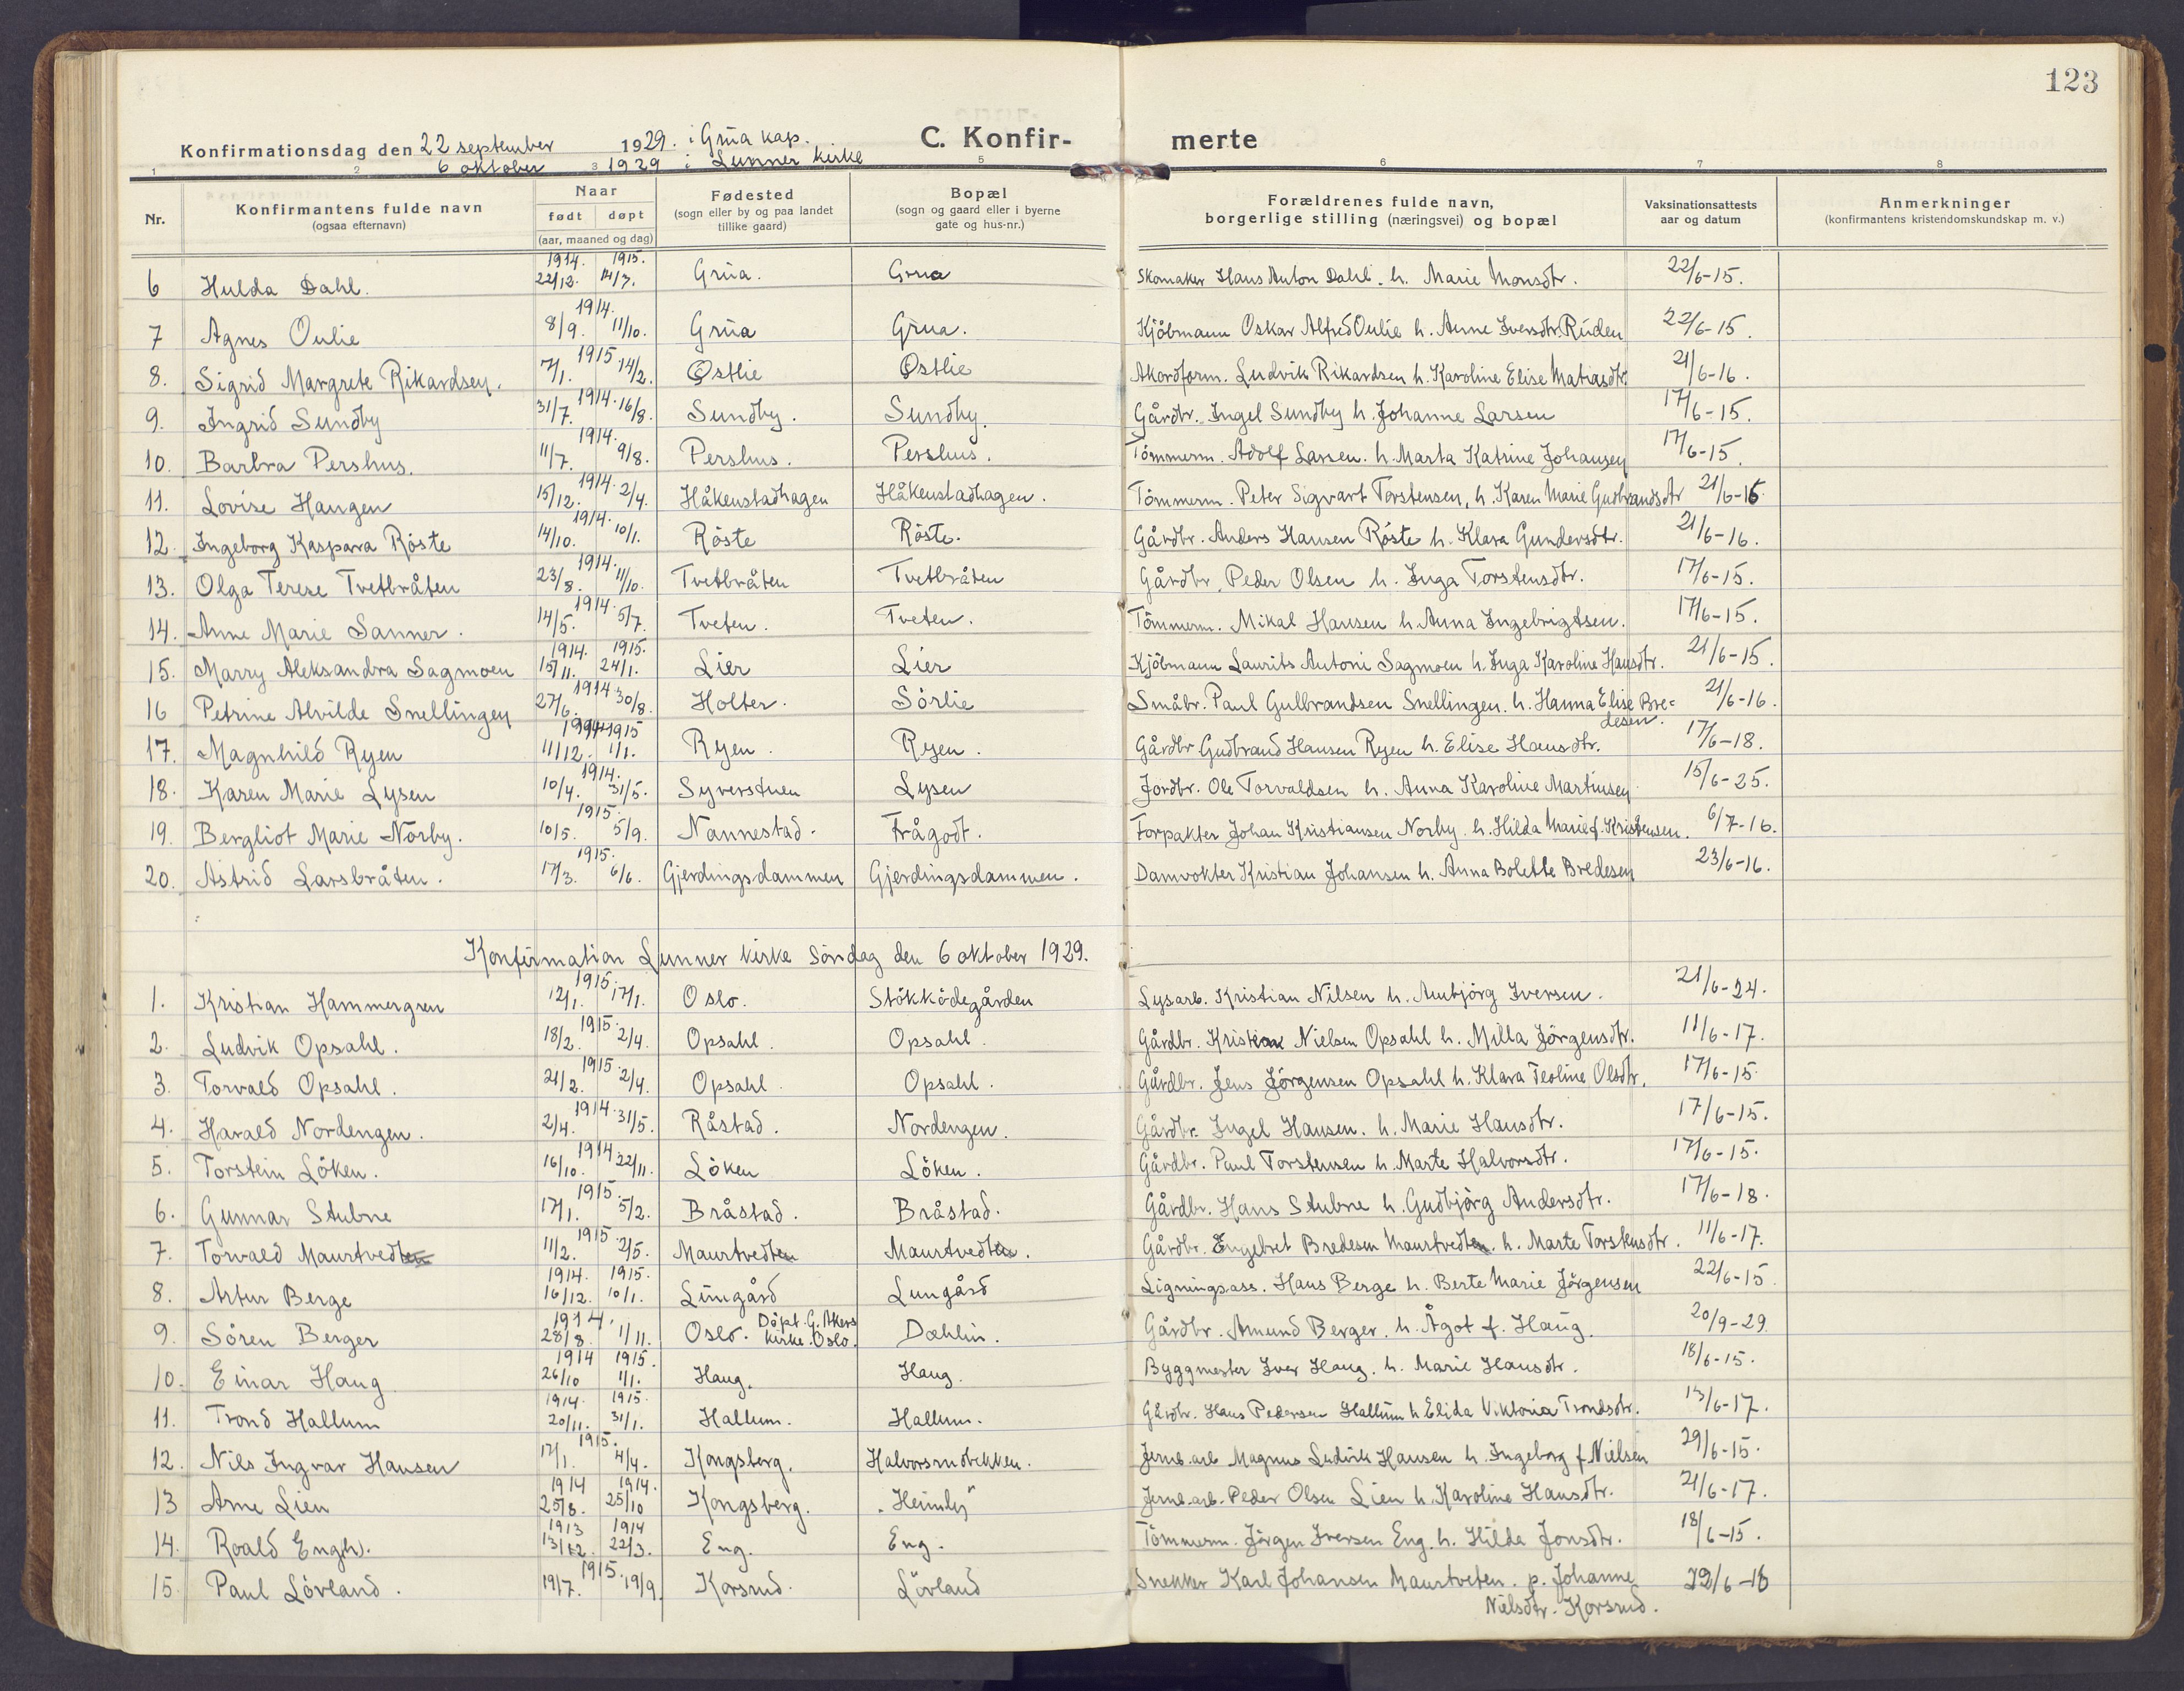 123
Konfirmationsdag den 22 september 1929. i Grua kap. C. Konfir- merte
6 oktober 1929 i Lunner kirke
1 2 3 5 6 7 8
Nr. Konfirmantens fulde navn (ogsaa efternavn) Naar født døpt (aar, maaned og dag) Fødested (sogn eller by og paa landet tillike gaard) Bopæl (sogn og gaard eller i byerne gate og hus-nr.) Forældrenes fulde navn, borgerlige stilling (næringsvei) og bopæl Vaksinationsattests aar og datum Anmerkninger (konfirmantens kristendomskundskap m. v.)
6 Hulda Dahl. 1914. 22/12. 1915. 14/3. Grua. Grua Skomaker Hans Anton Dahl. h. Marie Monsdtr. 22/6-15.
7 Agnes Oulie 1914. 8/9. 11/10. Grua Grua. Kjöbmann Oskar Alfred Oulie h. Anne Iversdtr. Ruden 22/6-15.
8. Sigrid Margrete Rikardsen. 1915. 7/1. 14/2. Östlie Östlie Akordform. Ludvik Rikardsen h. Karoline Elise Matiasdtr. 21/6-16.
9. Ingrid Sundby 1914. 31/7. 16/8. Sundby. Sundby. Gårdbr. Ingel Sundby h. Johanne Larsen 17/6-15.
10. Barbra Pershus. 1914. 11/7. 9/8. Pershus. Pershus. Tömmerm. Adolf Larsen. h. Marta Katrine Johansen 17/6-15.
11. Lovise Haugen 1914. 15/12. 2/4. Håkenstadhagen Håkenstadhagen. Tömmerm. Peter Sigvart Torstensen, h. Karen Marie Gudbrandsdtr 21/6-16
12. Ingeborg Kaspara Röste 1914. 14/10. 10/1. Röste Röste. Gårdbr. Anders Hansen Röste h. Klara Gundersdtr. 21/6-16.
13. Olga Terese Tvetbråten 1914. 23/8. 11/10. Tvetbråten Tvetbråten Gårdbr. Peder Olsen h. Inga Torstensdtr. 17/6-15.
14. Anne Marie Sanner. 1914. 14/5. 5/7. Tveten. Tveten. Tömmerm. Mikal Hansen h. Anna Ingebrigtsen. 17/6-15.
15. Marry Aleksandra Sagmoen 1914. 15/11. 1915. 24/1. Lier Lier Kjöbmann Laurits Antoni Sagmoen h. Inga Karoline Hansdtr. 21/6-15.
16 Petrine Alvilde Snellingen 1914. 27/6. 30/8. Holter. Sörlie Småbr. Paul Gulbrandsen Snellingen. h. Hanna Elise Bre=desen. 21/6-16.
17. Magnhild Ryen 1914 11/12. 1915 1/1. Ryen. Ryen. Gårdbr. Gudbrand Hansen Ryen h. Elise Hansdtr. 17/6-18.
18. Karen Marie Lysen 1914. 10/4. 31/5. Syverstuen Lysen Jordbr. Ole Torvaldsen h. Anna Karoline Martinsen 15/6-25.
19. Bergliot Marie Norby. 1915. 10/5. 5/9. Nannestad. Frågodt. Forpakter Johan Kristiansen Norby. h. Hilda Marie f. Kristensen. 6/7-16.
20. Astrid Larsbråten. 1915. 17/3. 6/6. Gjerdingsdammen Gjerdingsdammen. Damvokter Kristian Johansen h. Anna Bolette Bredesen 23/6-16.
Konfirmation Lunner kirke Söndag den 6 oktober 1929.
1. Kristian Hammergren 1915. 12/1. 17/1. Oslo. Stökködegården Lysarb. Kristian Nilsen h. Ambjörg Iversen. 21/6-24.
2. Ludvik Opsahl. 1915. 18/2. 2/4. Opsahl. Opsahl. Gårdbr. Kristian Nielsen Opsahl h. Milla Jörgensdtr. 11/6-17.
3. Torvald Opsahl. 1915. 21/2. 2/4. Opsahl. Opsahl. Gårdbr. Jens Jörgensen Opsahl h. Klara Teoline Olsdtr. 17/6-15.
4. Harald Nordengen. 1914. 2/4. 31/5. Råstad. Nordengen. Gårdbr. Ingel Hansen. h. Marie Hansdtr. 17/6-15.
5. Torstein Löken. 1914. 16/10. 22/11. Löken Löken. Gårdbr. Paul Torstensen h. Marte Halvorsdtr. 17/6-15.
6. Gunnar Stubne 1915. 17/1. 5/2. Bråstad. Bråstad. Gårdbr. Hans Stubne h. Gudbjörg Andersdtr. 17/6-18.
7. Torvald Maurtvedten 1915. 11/2. 2/5. Maurtvedten Maurtvedten. Gårdbr. Engebret Bredesen Maurtvedten. h. Marte Torstensdtr. 11/6-17.
8. Artur Berge 1914. 16/12. 1915. 10/1. Lungård Lungård Ligningsass. Hans Berge h. Berte Marie Jörgensen 22/6-15.
9. Sören Berger 1914. 28/8. 1/11. Oslo. Döpt. G. Akers kirke. Oslo. Dæhlin. Gårdbr. Amund Berger. h. Ågot f. Haug. 20/9-29.
10. Einar Haug 1914 26/10 1915. 1/1. Haug. Haug. Byggmester Iver Haug. h. Marie Hansdtr. 18/6-15.
11. Trond Hallum 1914. 20/11. 1915. 31/1. Hallum. Hallum. Gårdbr. Hans Pedersen Hallum h Elida Viktoria Trondsdtr. 13/6-17.
12. Nils Ingvar Hansen 1915. 17/1. 4/4. Kongsberg. Halvorsrudbekken. Jernb.arb Magnus Ludvik Hansen h. Ingeborg f. Nielsen 29/6-15.
13 Arne Lien 1914 25/8. 1914. 25/10 Kongsberg. "Heimly" Jernb.arb. Peder Olsen Lien h. Karoline Hansdtr. 21/6-17.
14. Roald Eng(h). 1913 13/12. 1914 22/3. Eng. Eng. Tömmerm. Jörgen Iversen Eng. h. Hilda Jonsdtr. 18/6-15.
15. Paul Lövland. 1915. 19/7. 19/9. Korsrud. Lövland Snekker Karl Johansen Maurtveten. p. Johanne Nielsdtr. Korsrud. 22/6-16